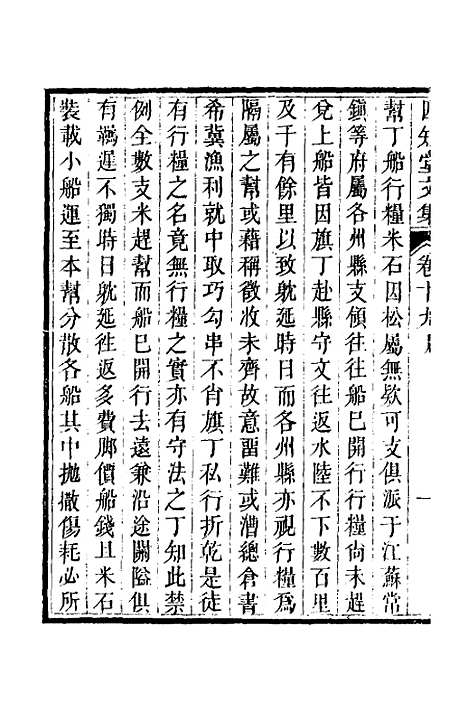 四知堂文集 卷十九
幫丁船行糧米石因松屬無欵可支俱派于江蘇常
鎮等府屬各州縣支領往往船已開行行糧尚未趕
兌上船皆因旗丁赴縣守文往返水陸不下數百里
及千有餘里以致躭延時日而各州縣亦視行糧爲
隔屬之幫或藉稱徵收未齊故意畱難或漕總倉書
希冀漁利就中取巧勾串不肖旗丁私行折乾是徒
有行糧之名竟無行糧之實亦有守法之丁知此禁
例全數支米趕幫而船已開行去遠兼沿途閘隘俱
有羈遲不獨時日躭延徃返多費脚價船錢且米石
裝載小船運至本幫分散各船其中拋撒傷耗必所